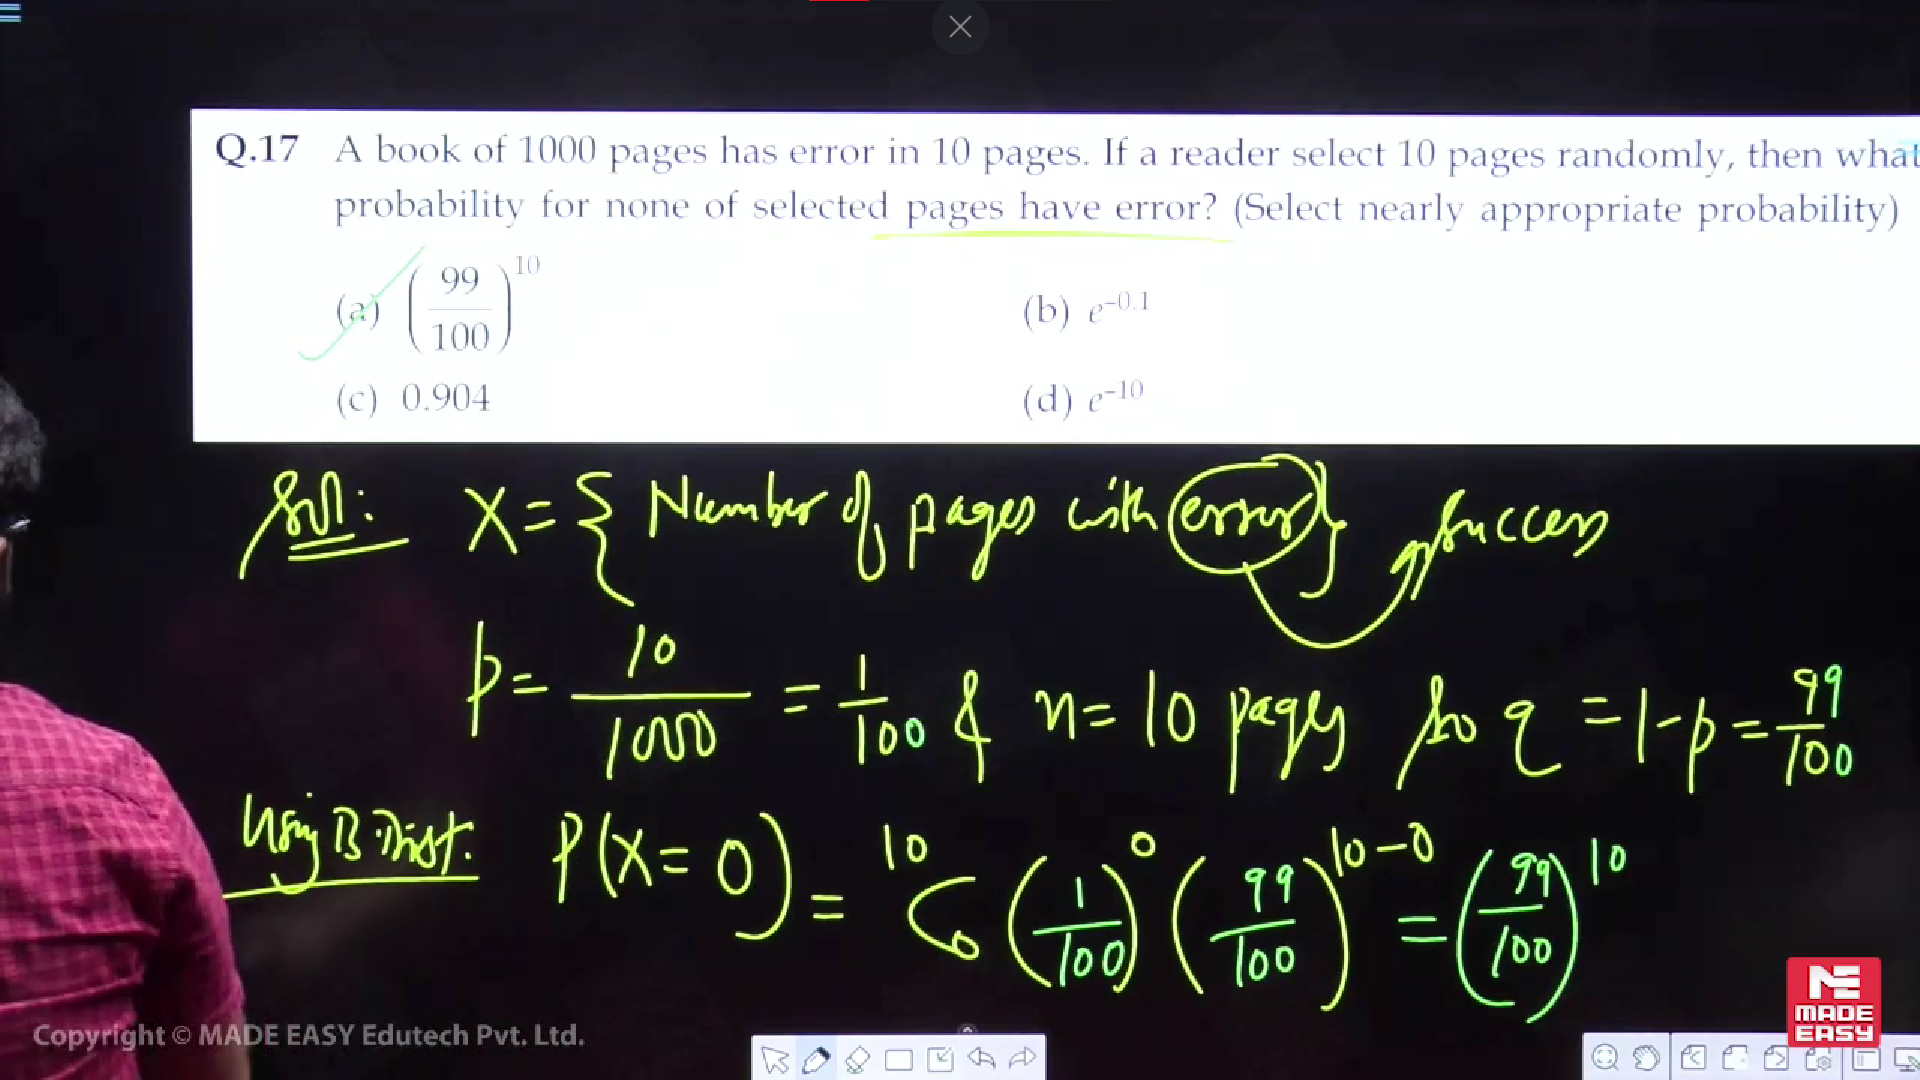 Q.17 A book of 1000 pages has error in 10 pages. If a reader select 10 pages randomly, then what
probability for none of selected pages have error? (Select nearly appropriate probability)
(a) (99/100)^10 (b) e^-0.1
(c) 0.904 (d) e^-10
Sol: X = { Number of pages with error} Success
p = 10/1000 = 1/100 & n = 10 pages so q = 1 - p = 99/100
Using B.Dist. P(X = 0) = 10C0 (1/100)^0 (99/100)^10-0 = (99/100)^10
ME
MADE
EASY
Copyright © MADE EASY Edutech Pvt. Ltd.